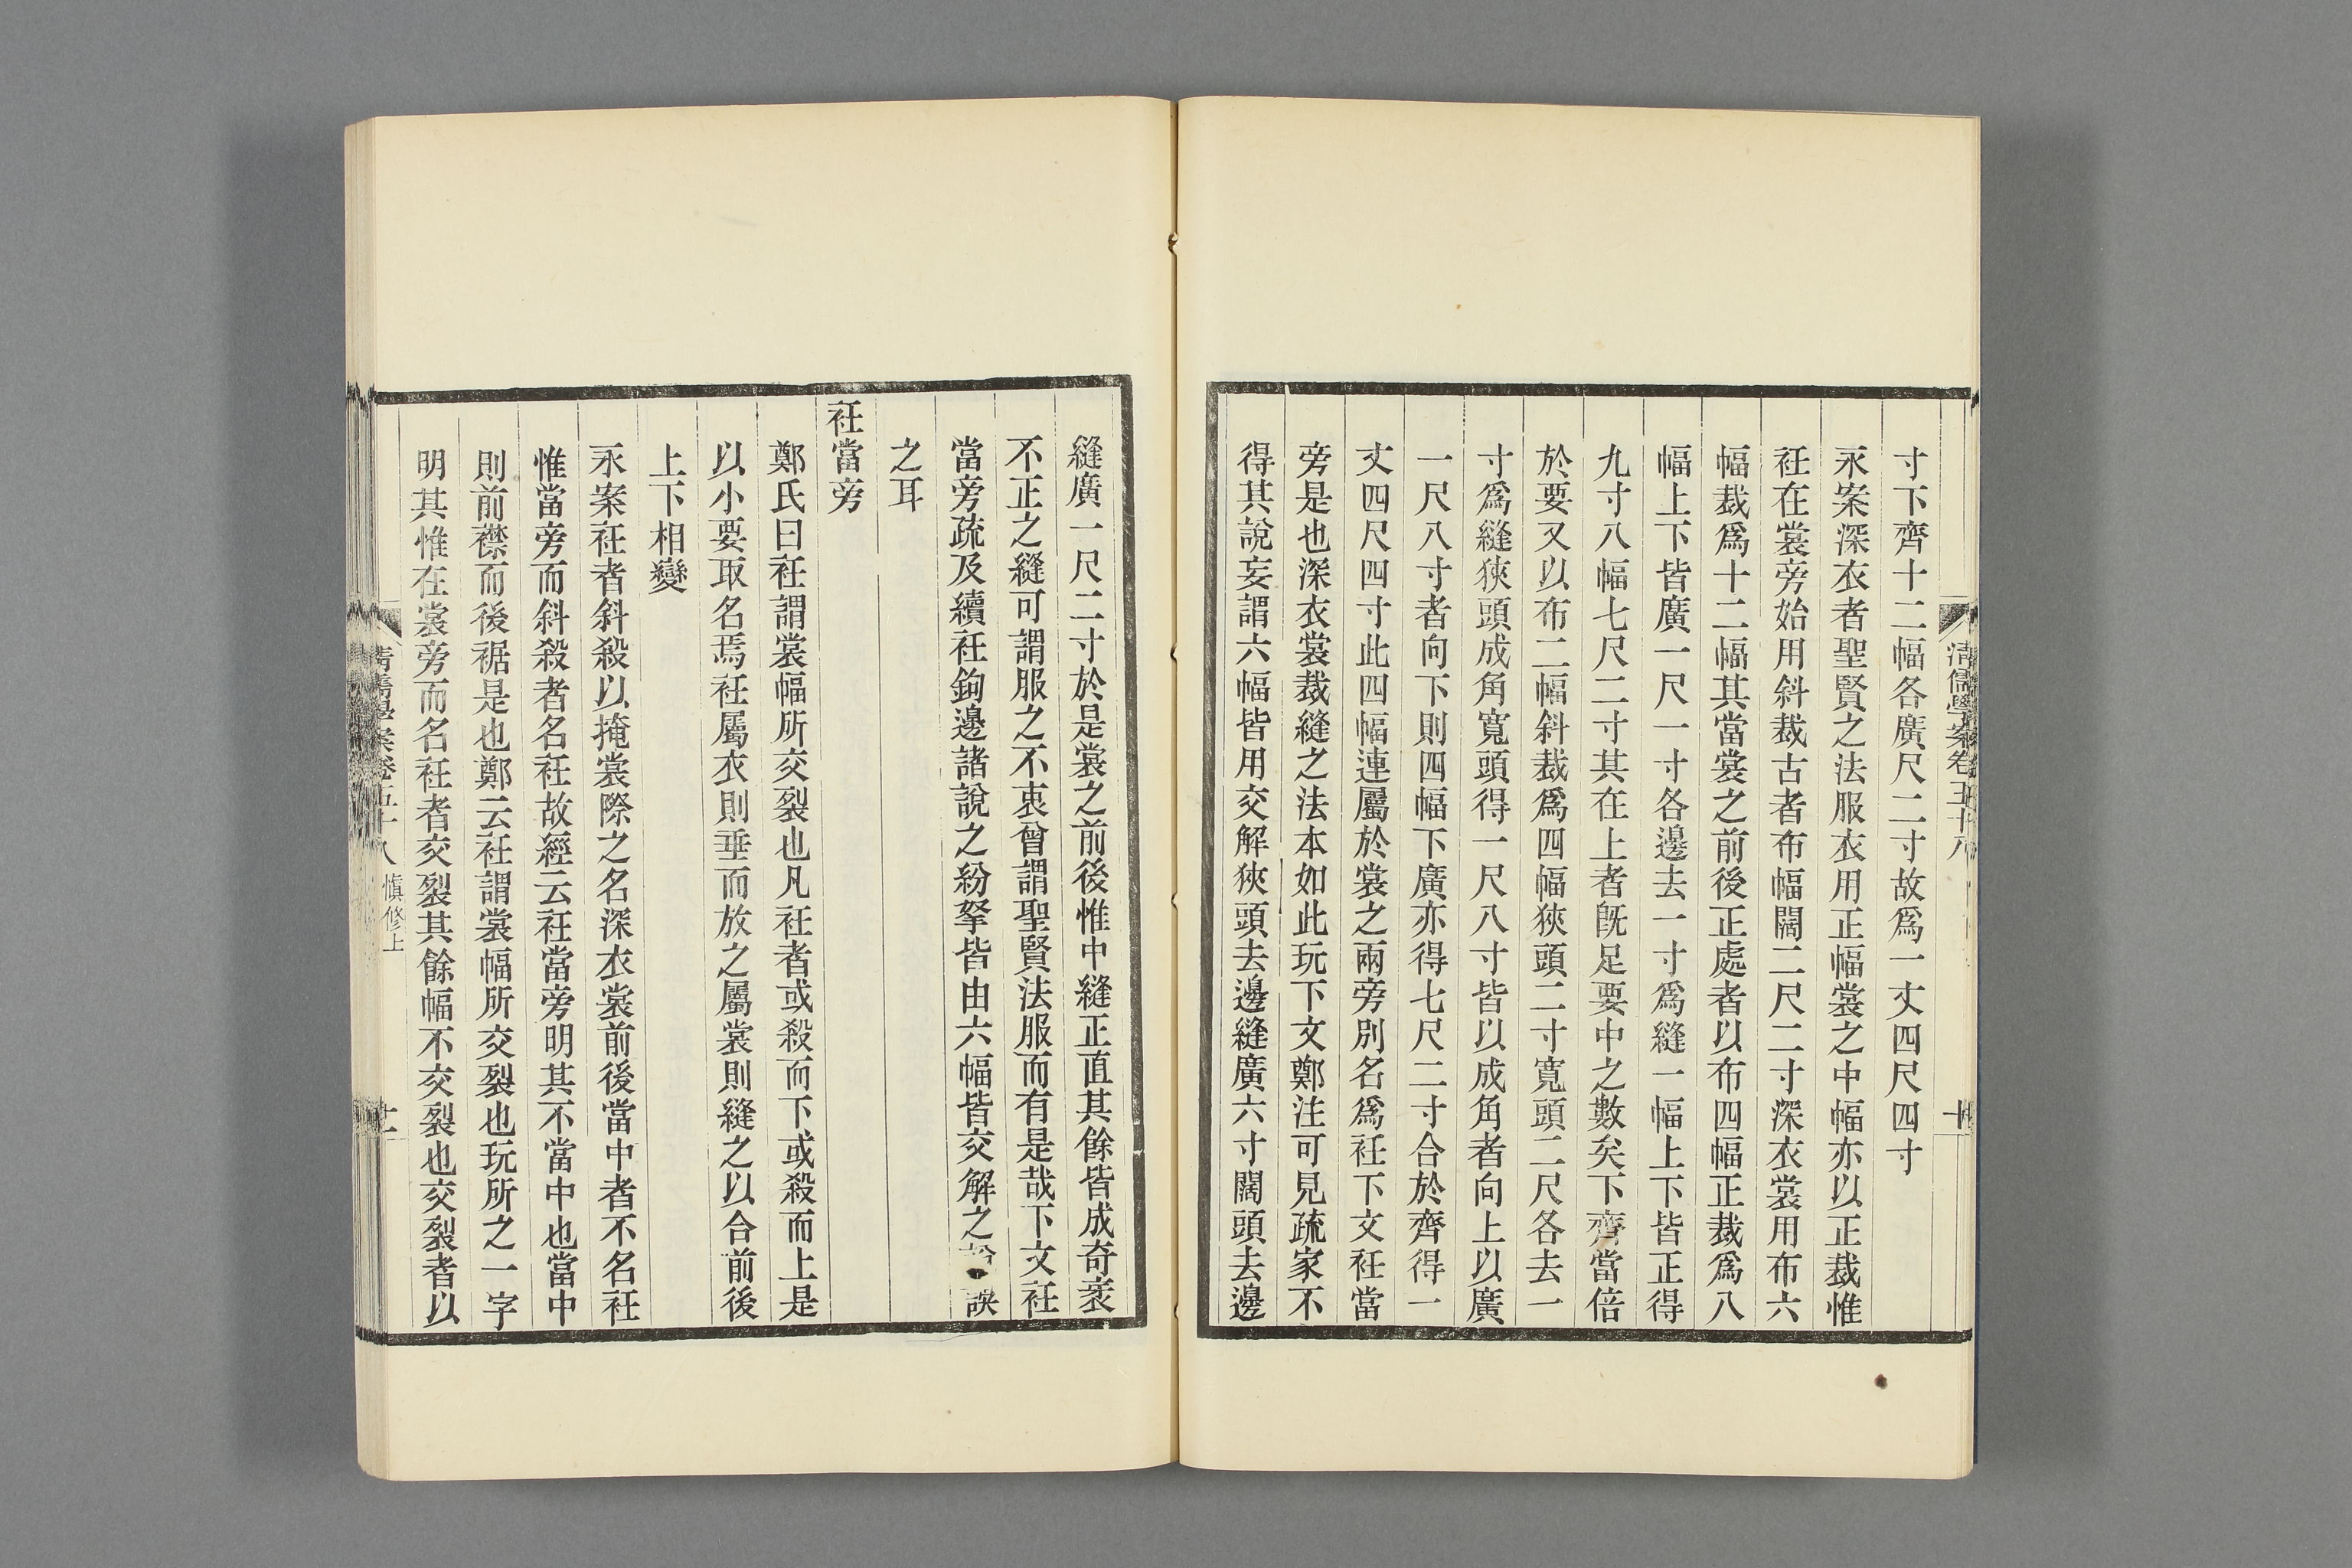 清儒學案卷五十八
十
寸下齊十二幅各廣尺二寸故爲一丈四尺四寸
永案深衣者聖賢之法服衣用正幅裳之中幅亦以正裁惟
衽在裳旁始用斜裁古者布幅闊二尺二寸深衣裳用布六
幅裁爲十二幅其當裳之前後正處者以布四幅正裁爲八
幅上下皆廣一尺一寸各邊去一寸爲縫一幅上下皆正得
九寸八幅七尺二寸其在上者旣足要中之數矣下齊當倍
於要又以布二幅斜裁爲四幅狹頭二寸寬頭二尺各去一
寸爲縫狹頭成角寬頭得一尺八寸皆以成角者向上以廣
一尺八寸者向下則四幅下廣亦得七尺二寸合於齊得一
丈四尺四寸此四幅連屬於裳之兩旁別名爲衽下文衽當
旁是也深衣裳裁縫之法本如此玩下文鄭注可見疏家不
得其說妄謂六幅皆用交解狹頭去邊縫廣六寸闊頭去邊
縫廣一尺二寸於是裳之前後惟中縫正直其餘皆成奇衺
不正之縫可謂服之不衷曾謂聖賢法服而有是哉下文衽
當旁疏及續衽鉤邊諸說之紛拏皆由六幅皆交解之誤
之耳
衽當旁
鄭氏曰衽謂裳幅所交裂也凡衽者或殺而下或殺而上是
以小要取名焉衽屬衣則垂而放之屬裳則縫之以合前後
上下相變
永案衽者斜殺以掩裳際之名深衣裳前後當中者不名衽
惟當旁而斜殺者名衽故經云衽當旁明其不當中也當中
則前襟而後裾是也鄭云衽謂裳幅所交裂也玩所之一字
明其惟在裳旁而名衽者交裂其餘幅不交裂也交裂者以
清儒學案卷五十八 慎修上
十一